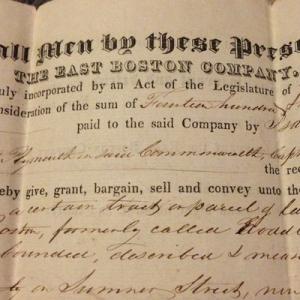 all Men by these Prese
THE EAST BOSTON COMPANY,
uly incorporated by an Act of the Legislature of
nsideration of the sum of Fourteen hundred
paid to the said Company by Isa
Plymouth in said Commonwealth,
the rec
eby give, grant, bargain, sell and convey unto the
a certain tract or parcel of la
oston, formerly called Nodd
bounded, described & meas
on Sumner Street, nin